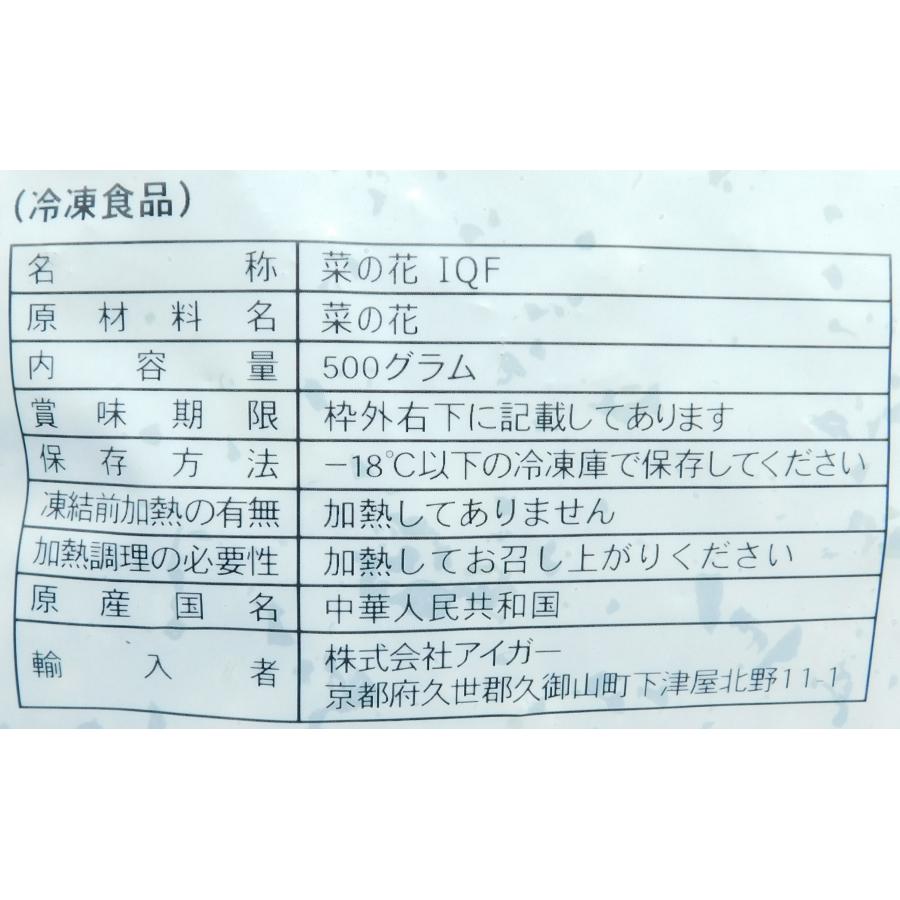 (冷凍食品)
名称 菜の花 IQF
原材料名 菜の花
内容量 500グラム
賞味期限 枠外右下に記載してあります
保存方法 −18℃以下の冷凍庫で保存してください
凍結前加熱の有無 加熱してありません
加熱調理の必要性 加熱してお召し上がりください
原産国名 中華人民共和国
輸入者 株式会社アイガー
京都府久世郡久御山町下津屋北野11-1